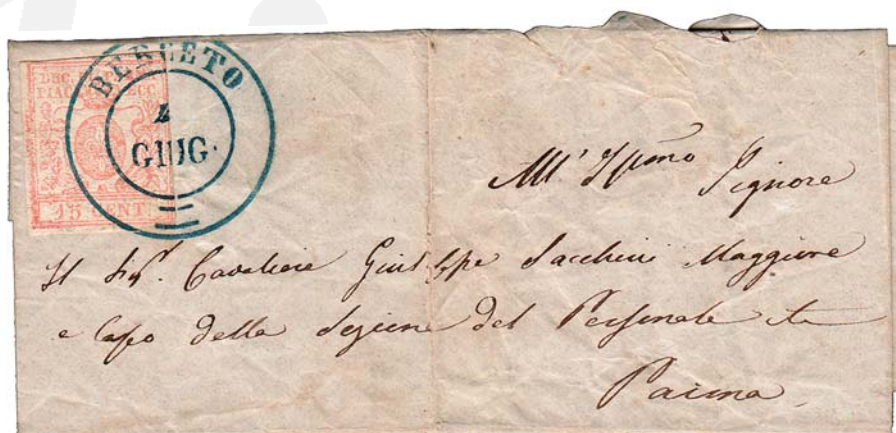 BERCETO
4
GIUG.
DUC. DI PAR.
PIAC. ECC.
15 CENT.
All' Illmo Signore
Il Sigr. Cavaliere Giuseppe Sacchini Maggiore
e Capo della Sezione del Personale
Parma